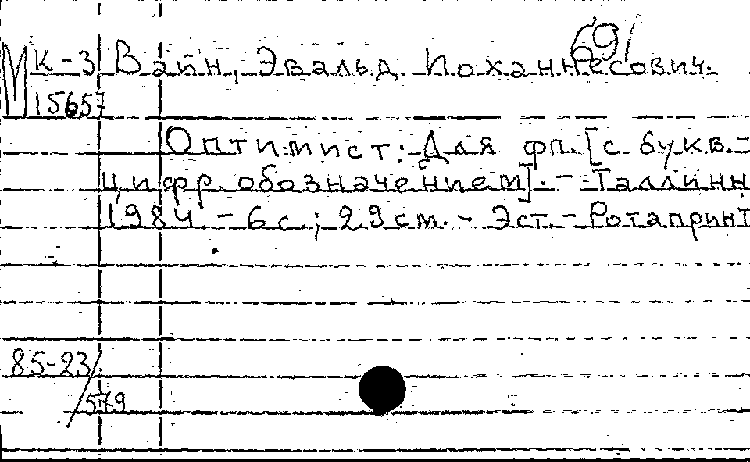 691
М К-3 Вайн, Эвальд Йоханнесович.
15657
Оптимист: Для фп. [с букв.-
цифр. обозначением]. - Таллинн
1984. - 6 с.; 29 см. - Эст. - Ротапринт
85-23/
579